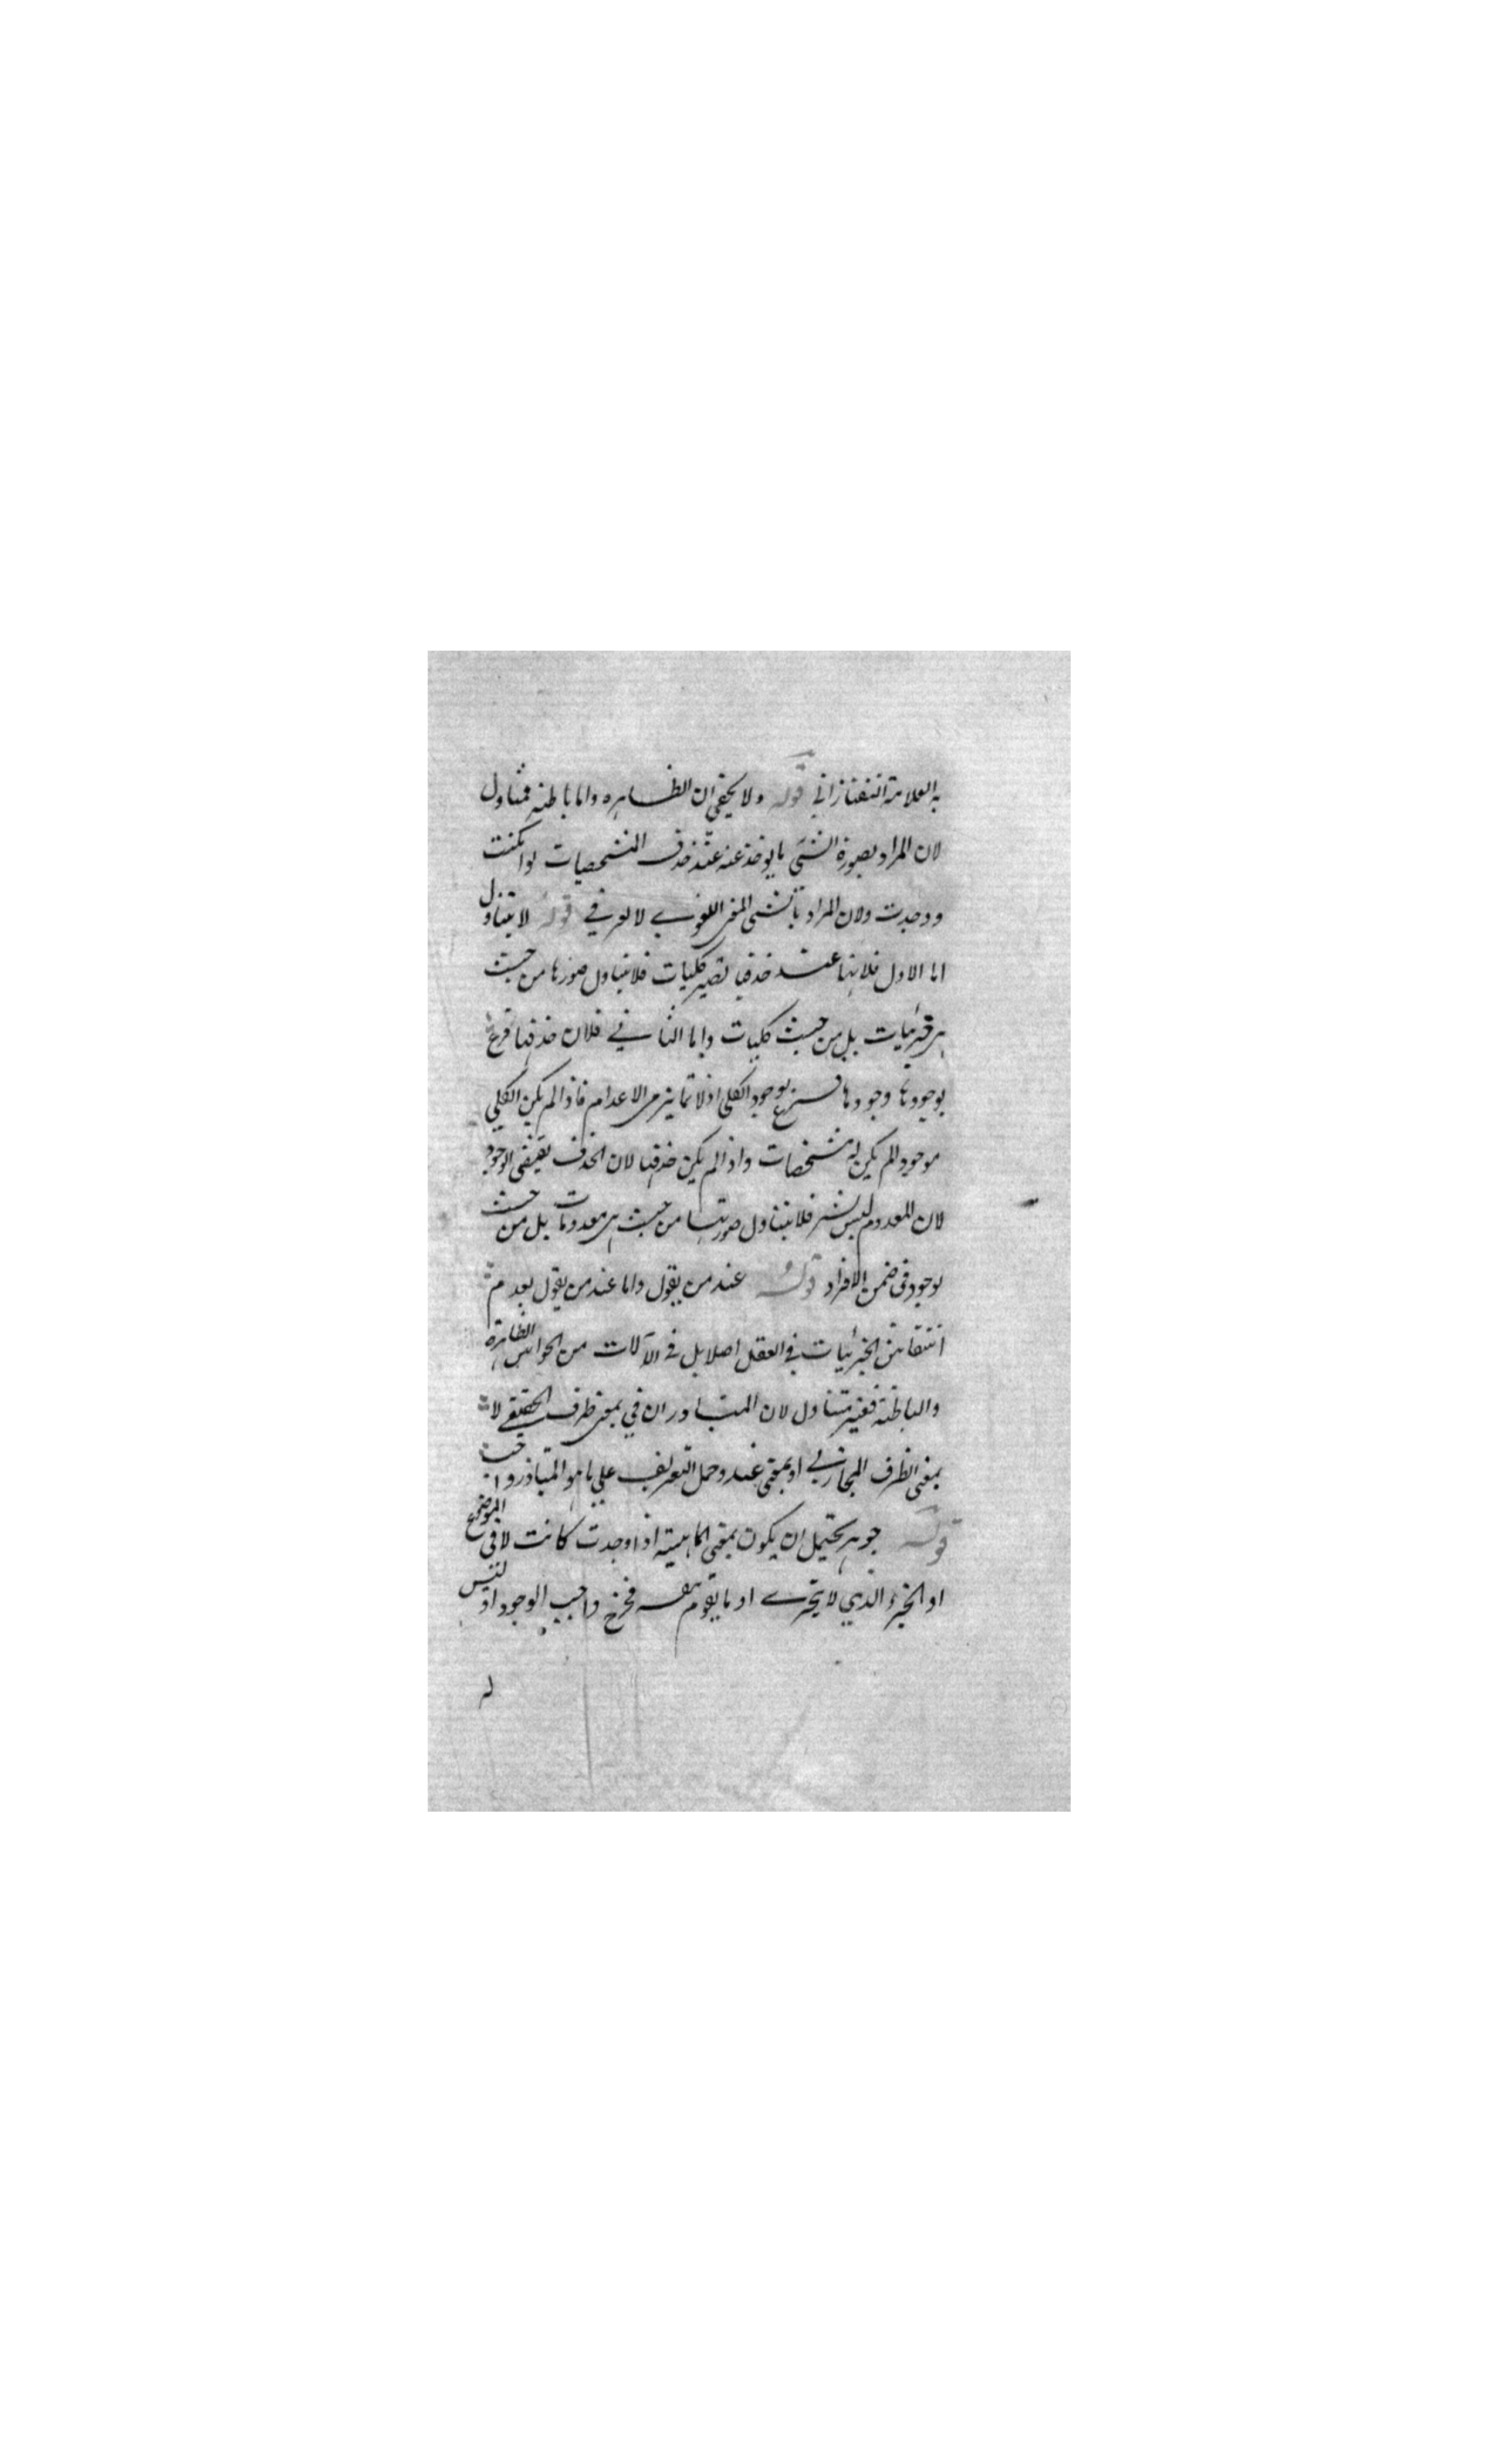 به العلامة التفتازاني قوله ولا يخفى ان الظاهره واما باطنه فمتناول
لان المراد بصورة الشيئ ما يوخذ عنه عند حذف التشخصيات لو امكنت
ووجدت ولان المراد بالشيئ المعنى اللغوي لا العرفي قوله لا يتناول
اما الاول فلانها عند حذفها تصير كليات فلا يتناول صورها من حيث
هي جزئيات بل من حيث كليات واما الثاني فلان حذفها فرع
بوجودها وجودها فرع بوجود الكلي اذ لا تمايز في الاعدام فاذا لم يكن الكلي
موجود لم يكن له مشخصات واذا لم يكن حذفها لان الحذف يقتضى الوجود
لان المعدوم ليس بشيئ فلا يتناول صورتها من حيث هي معدومات بل من حيث
يوجود في ضمن الافراد قوله عند من يقول واما عند من يقول بعدم
انتقاش الجزئيات في العقل اصلا بل في الآلات من الحواس الظاهرة
والباطنة فغير متناول لان المتبادر ان في بمعنى ظرف الحقيقي لا
بمعنى الظرف المجازي او بمعنى عند وحمل التعريف علي ما هو المتبادر واجب
قوله جوهر يحتمل ان يكون بمعنى الماهية اذا وجدت كانت لا في الموضوع
او الجزء الذي لا يتجزى او ما يقوم بنفسه فخرج واجب الوجود اذ ليس
له